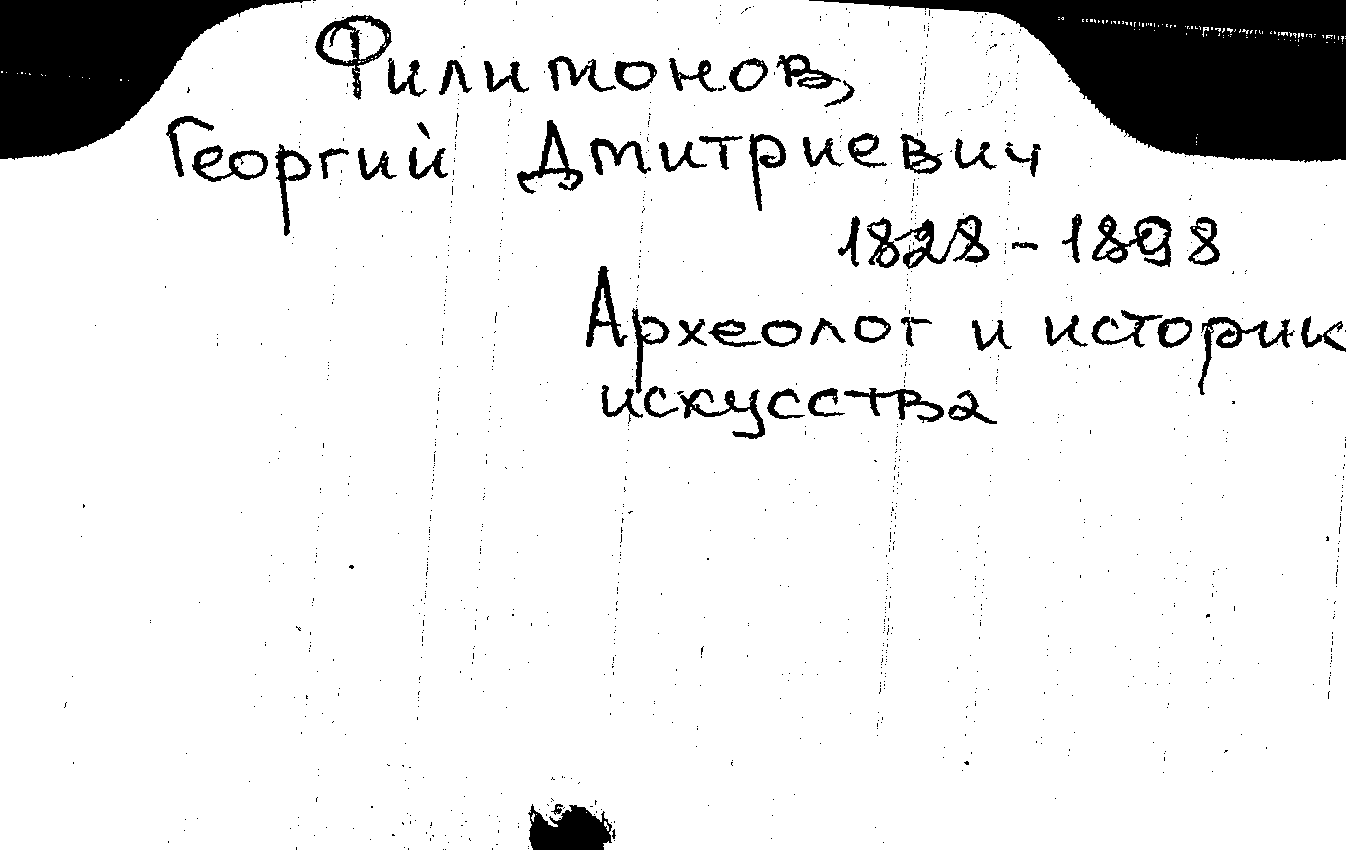 Филимонов,
Георгий Дмитриевич
1828 - 1898
Археолог и историк
искусства